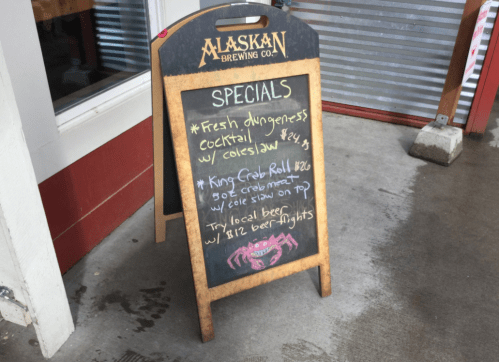 ALASKAN
BREWING CO.
SPECIALS
*Fresh dungeness
cocktail $24.95
w/ coleslaw
* King Crab Roll $26
5oz crab meat
w/ cole slaw on top
Try local beer
w/ $12 beer flights